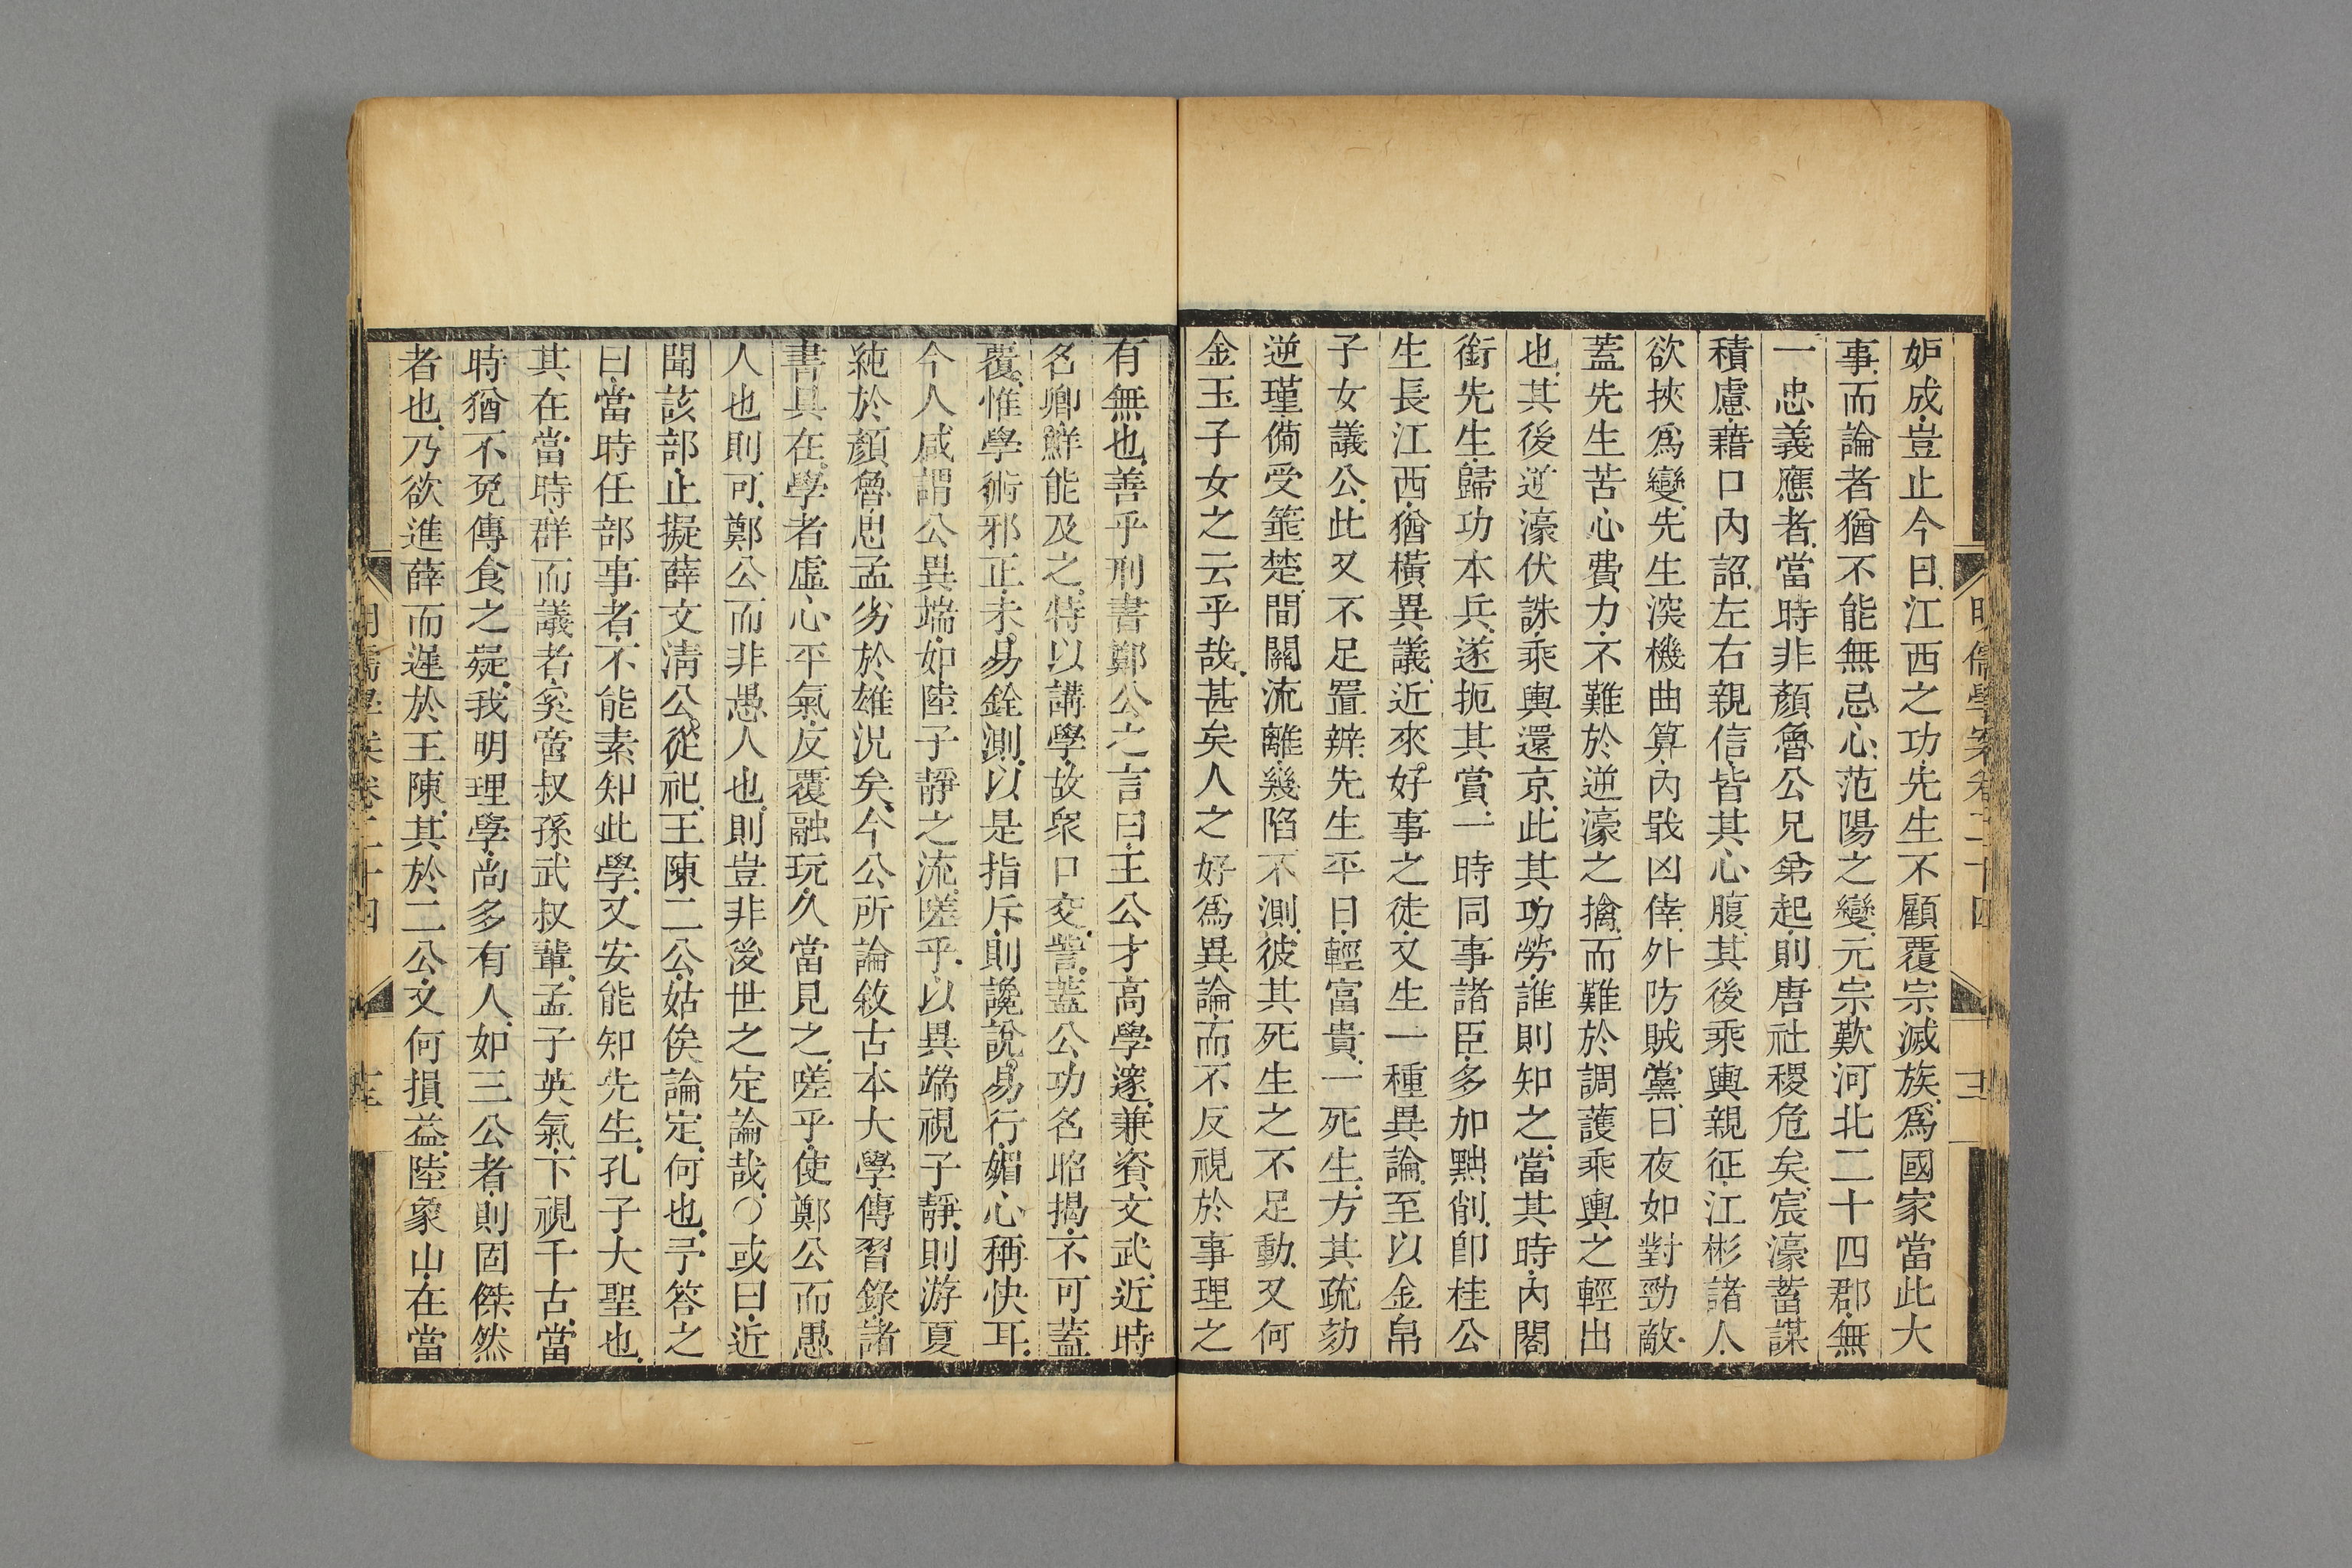 妒成豈止今日江西之功先生不顧覆宗滅族爲國家當此大
事而論者猶不能無忌心范陽之變元宗歎河北二十四郡無
一忠義應者當時非顏魯公兄弟起則唐社稷危矣宸濠蓄謀
積慮藉口內詔左右親信皆其心腹其後乘輿親征江彬諸人
欲挾爲變先生深機曲算內戢凶倖外防賊黨日夜如對勁敵
蓋先生苦心費力不難於逆濠之擒而難於調護乘輿之輕出
也其後逆濠伏誅乘輿還京此其功勞誰則知之當其時內閣
銜先生歸功本兵遂扼其賞一時同事諸臣多加黜削即桂公
生長江西猶橫異議近來好事之徒又生一種異論至以金帛
子女議公此又不足置辨先生平日輕富貴一死生方其疏劾
逆瑾備受箠楚間關流離幾陷不測彼其死生之不足動又何
金玉子女之云乎哉甚矣人之好爲異論而不反視於事理之
有無也善乎刑書鄭公之言曰王公才高學邃兼資文武近時
名卿鮮能及之特以講學故衆口交訾蓋公功名昭揭不可蓋
覆惟學術邪正未易銓測以是指斥則讒說易行媚心稱快耳
今人咸謂公異端如陸子靜之流嗟乎以異端視子靜則游夏
純於顏魯思孟劣於雄況矣今公所論敘古本大學傳習錄諸
書具在學者虛心平氣反覆融玩久當見之嗟乎使鄭公而愚
人也則可鄭公而非愚人也則豈非後世之定論哉○或曰近
聞該部止擬薛文清公從祀王陳二公姑俟論定何也予答之
曰當時任部事者不能素知此學又安能知先生孔子大聖也
其在當時群而議者奚啻叔孫武叔輩孟子英氣下視千古當
時猶不免傳食之疑我明理學尚多有人如三公者則固傑然
者也乃欲進薛而遲於王陳其於二公又何損益陸象山在當
明儒學案卷二十四